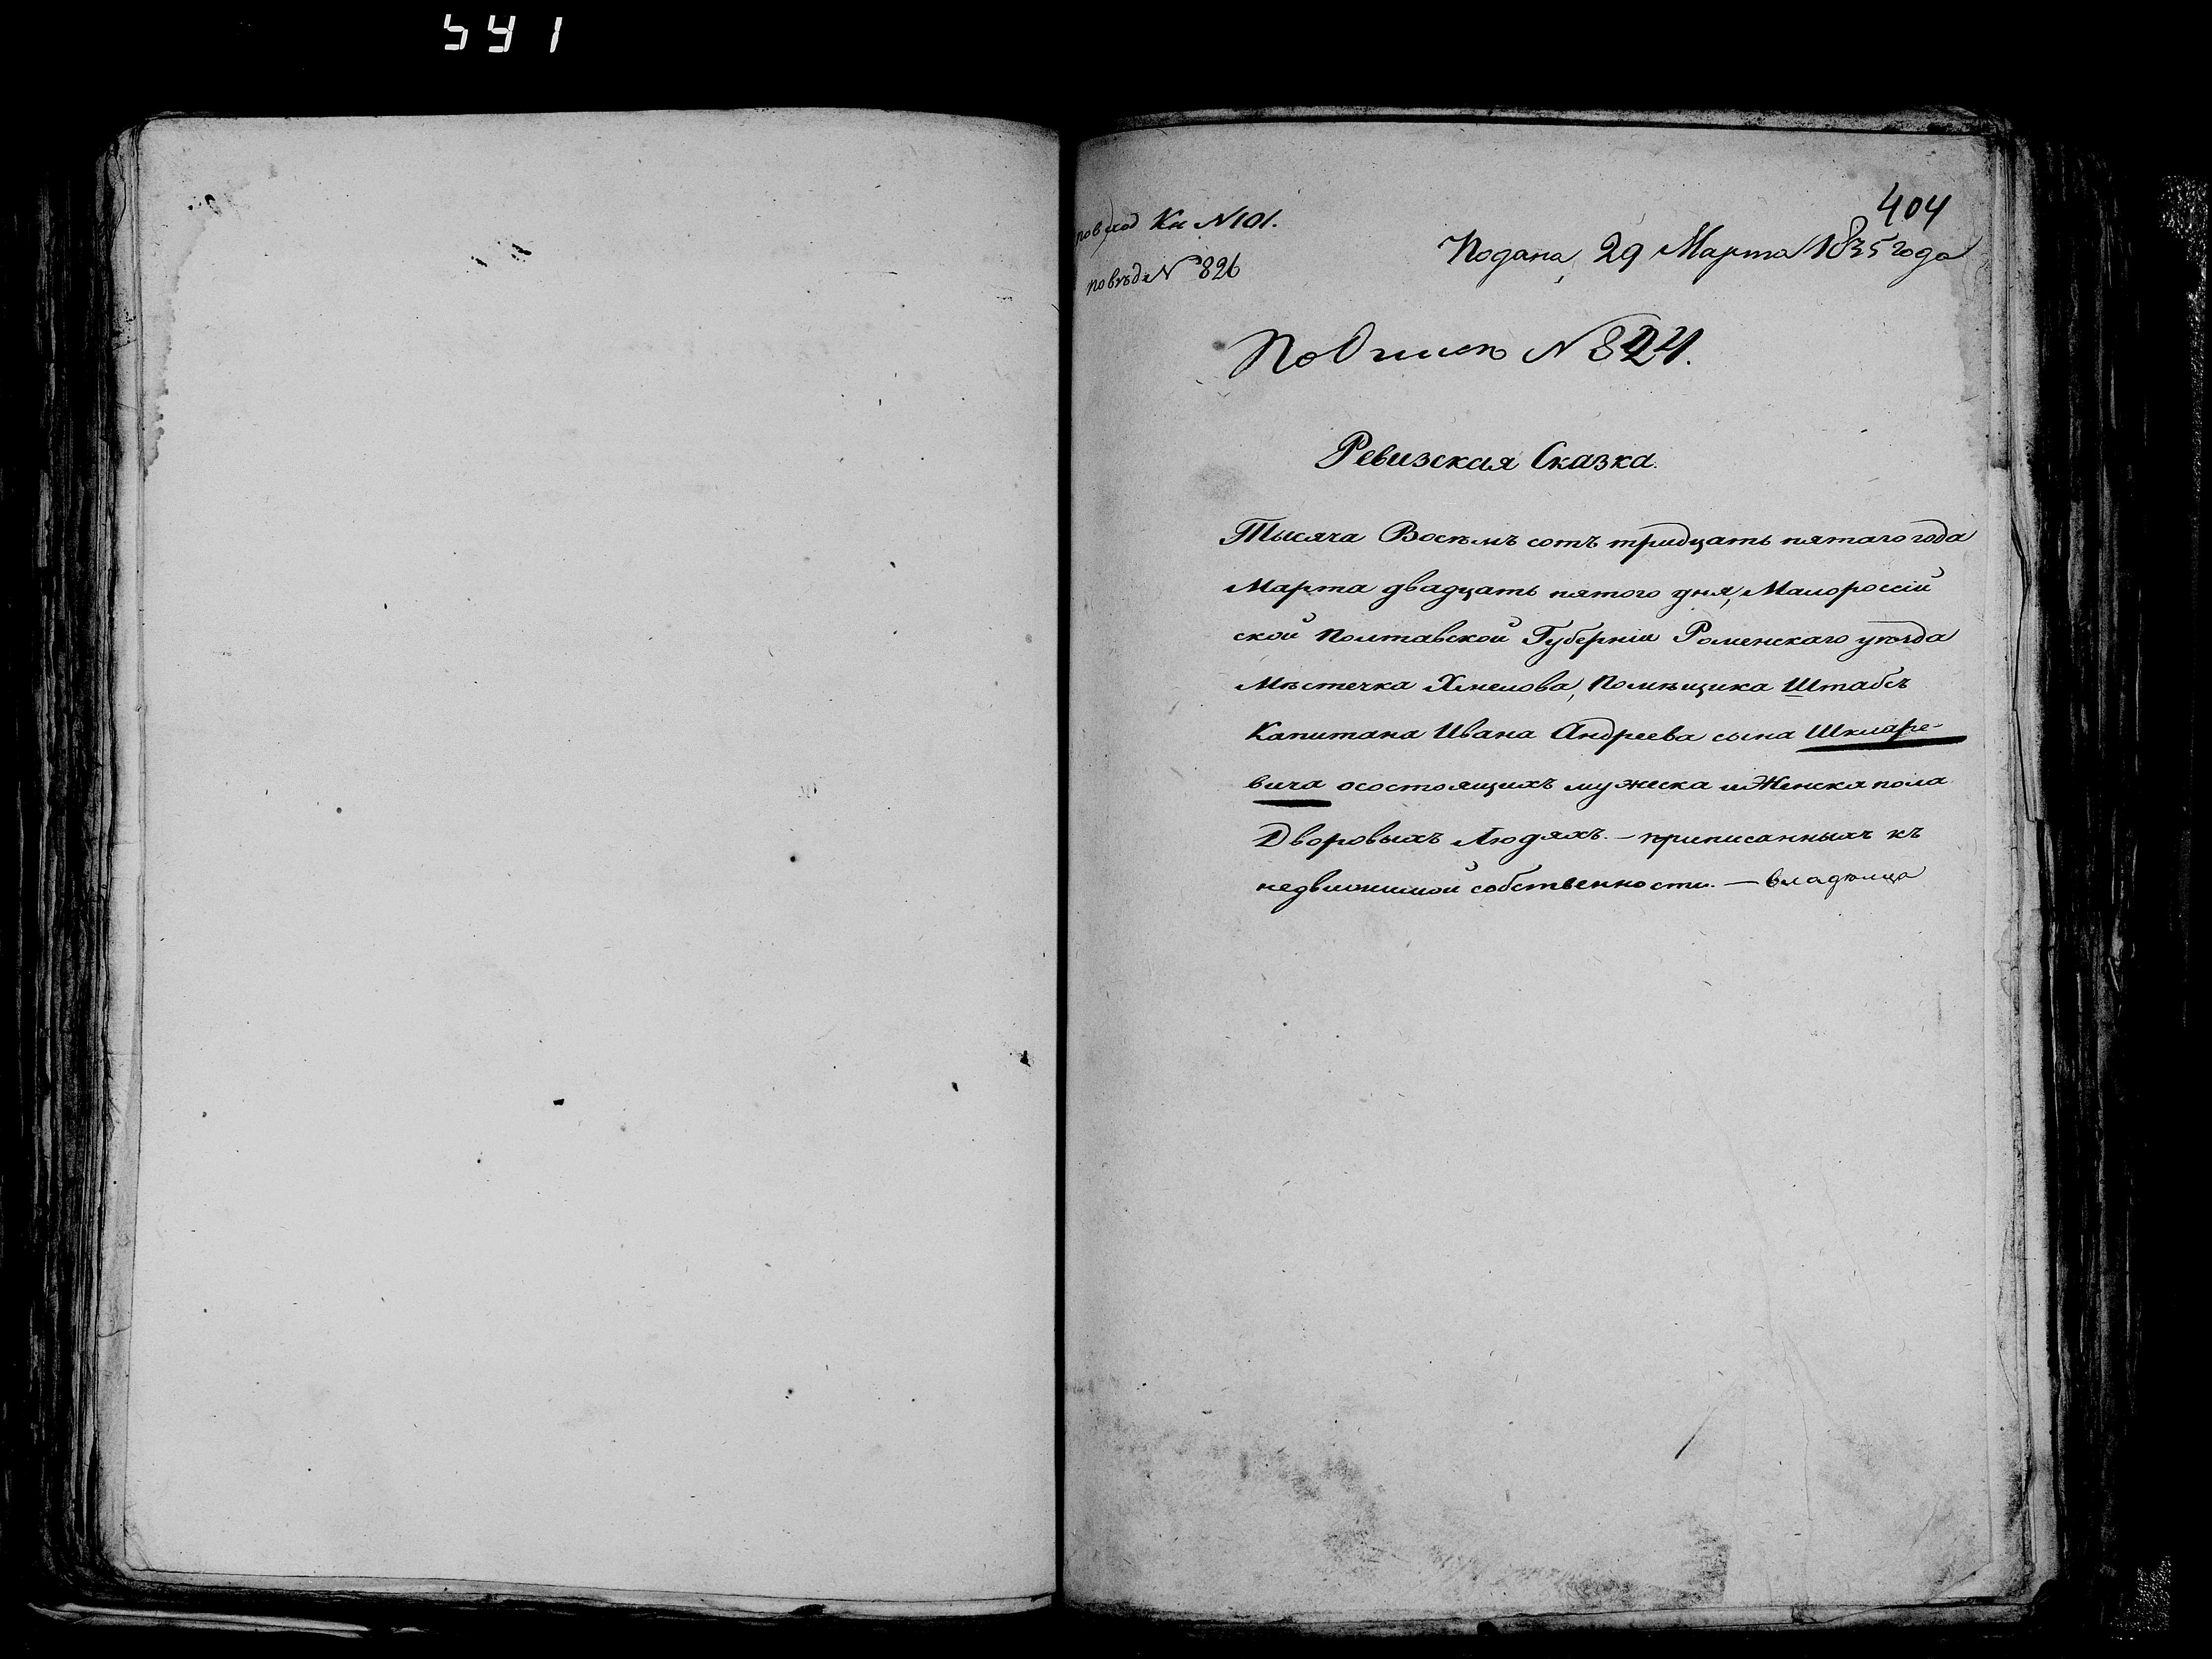 541
404
повход Кн N 101.
Подана, 29 Марта 1835 года
повѣд N 826
N 824.
Ревизская Сказка.
Тысяча Восѣмъ сотъ тридцать пятаго года
Марта двадцать пятого дня, Малороссій
ской Полтавской Губерніи Роменскаго уѣзда
Мѣстечка Хмелова, Помѣщика Штабсъ
Капитана Ивана Андреева сына Шкляре-
вича осостоящихъ мужеска и Женска пола
Дворовыхъ Людяхъ. — приписанныхъ къ
недвижимой собственности. — владѣльца